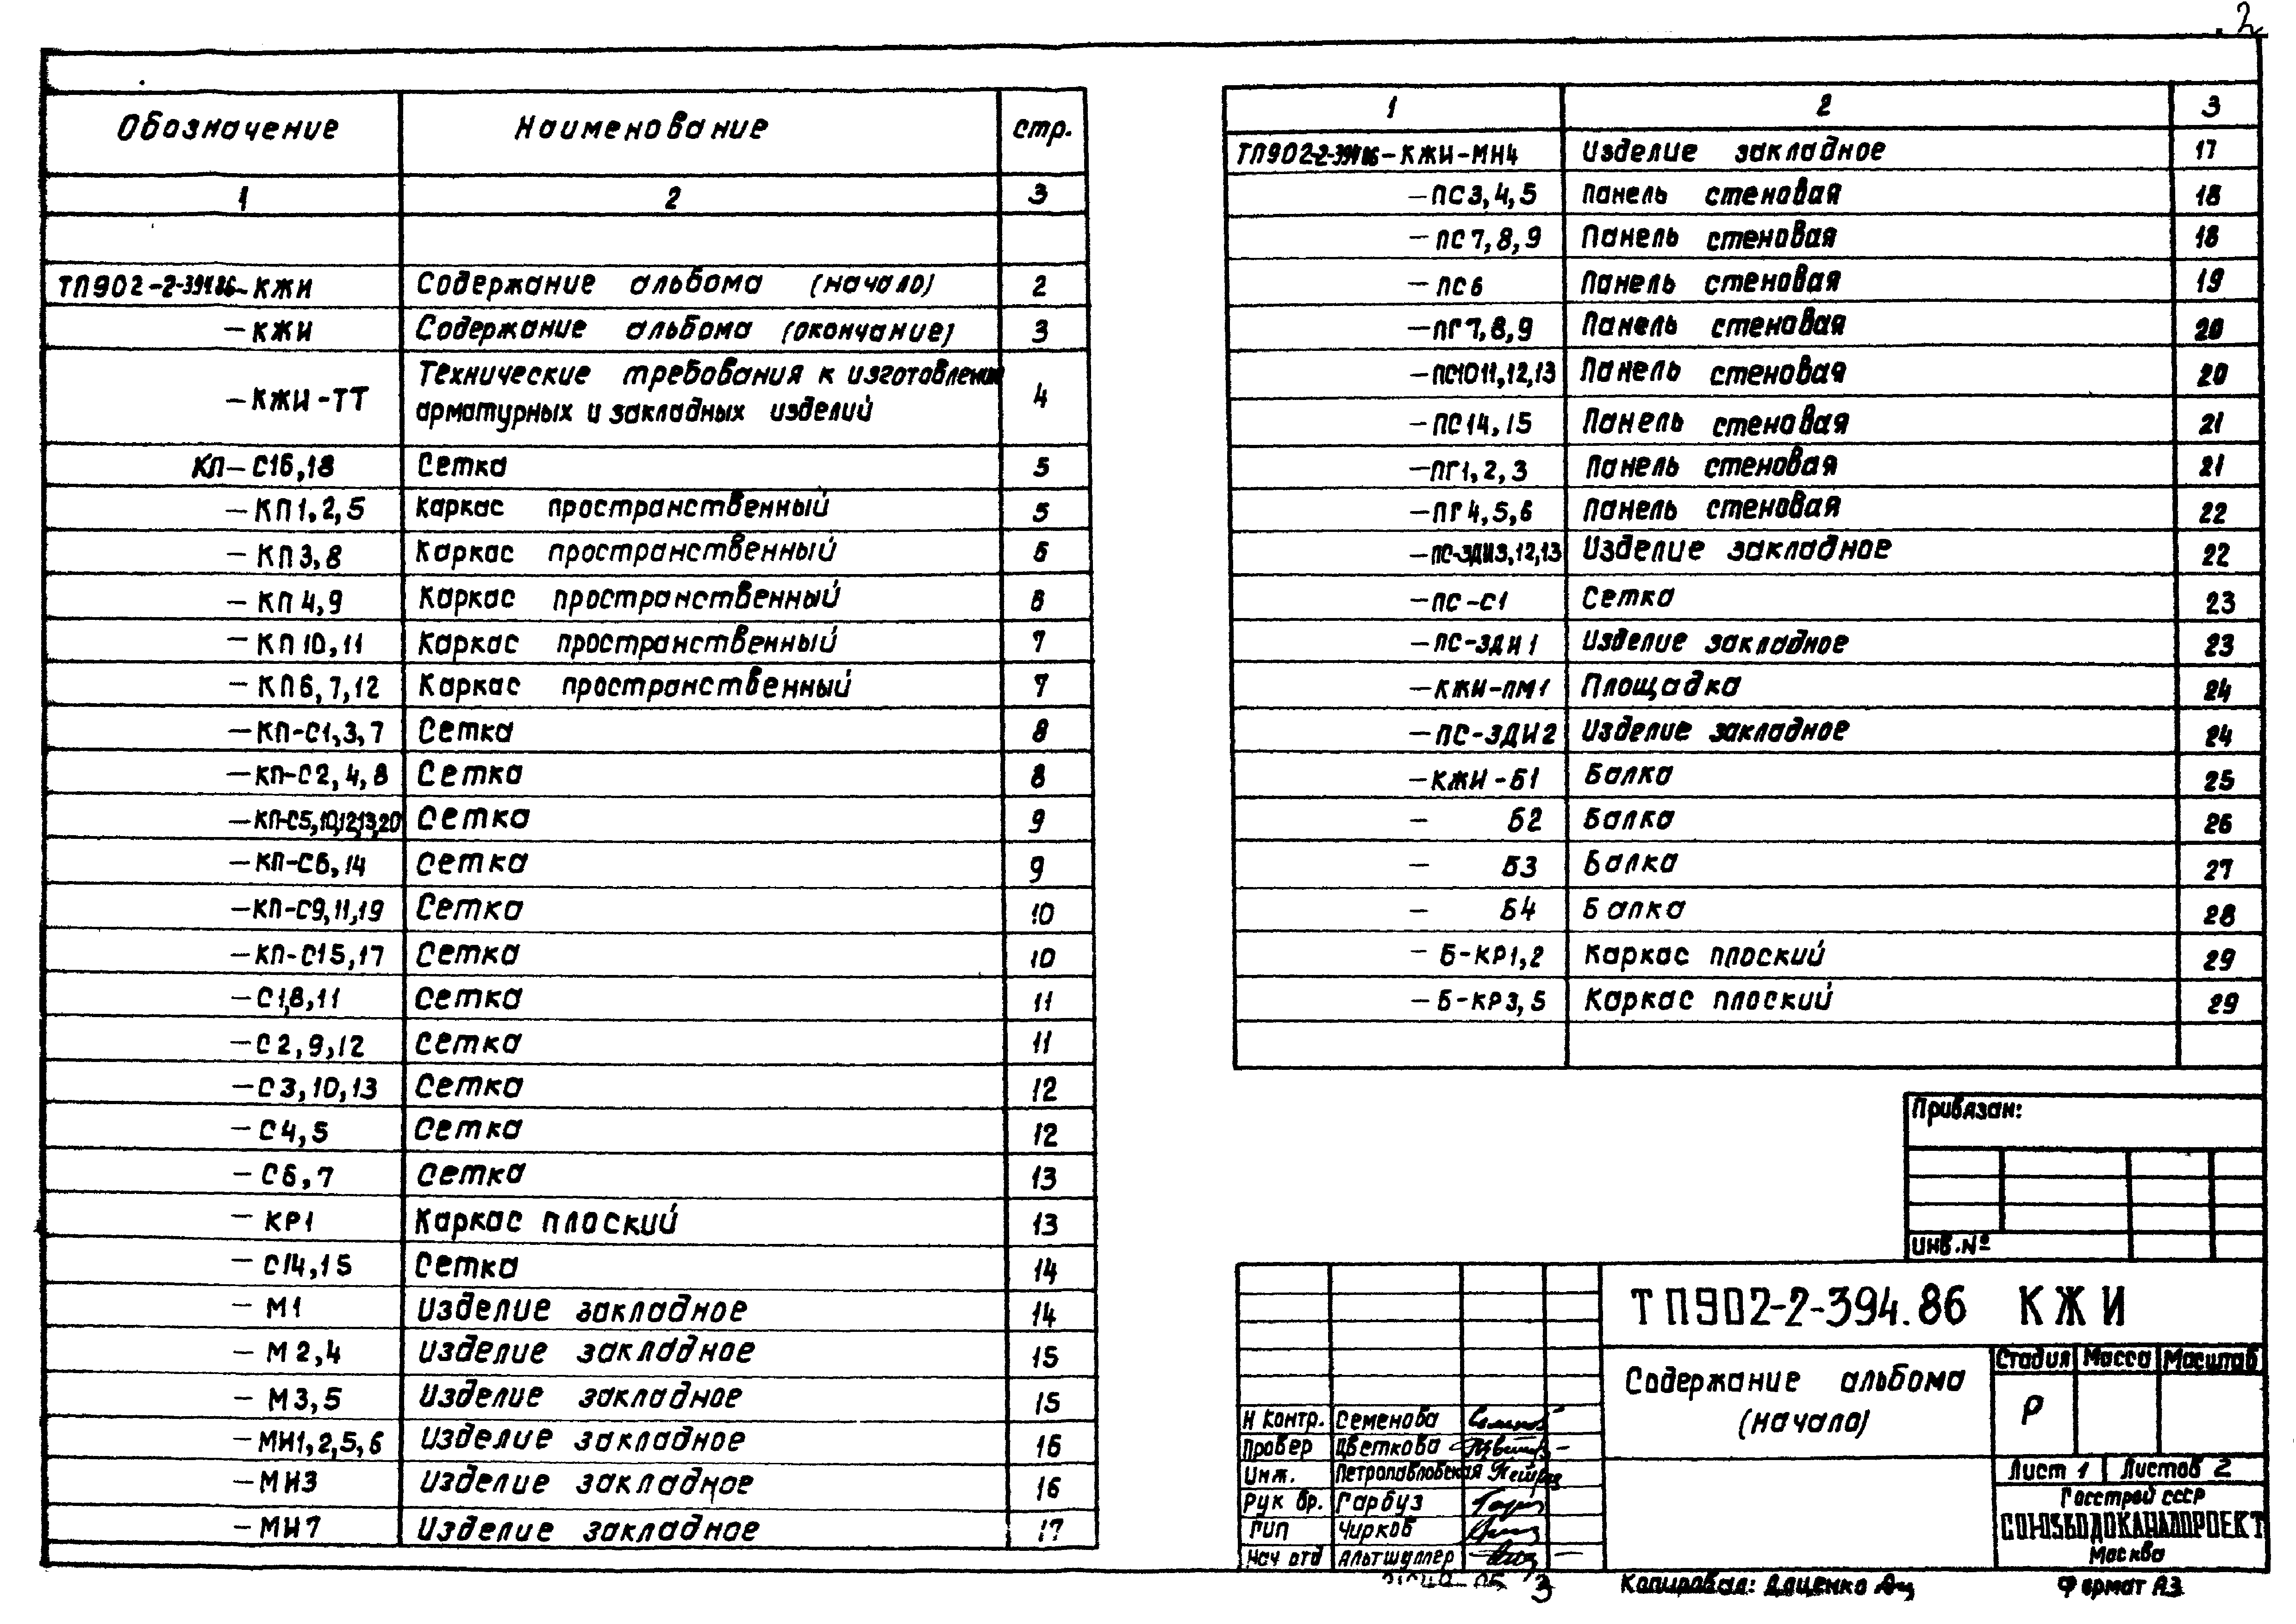 2
Обозначение Наименование стр.
1 2 3
ТП902-2-394.86-КЖИ Содержание альбома (начало) 2
-КЖИ Содержание альбома (окончание) 3
-КЖИ-ТТ Технические требования к изготовлению
арматурных и закладных изделий 4
КП-С16,18 Сетка 5
-КП1,2,5 Каркас пространственный 5
-КП3,8 Каркас пространственный 6
-КП4,9 Каркас пространственный 6
-КП10,11 Каркас пространственный 7
-КП6,7,12 Каркас пространственный 7
-КП-С1,3,7 Сетка 8
-КП-С2,4,8 Сетка 8
-КП-С5,10,12,13,20 Сетка 9
-КП-С6,14 Сетка 9
-КП-С9,11,19 Сетка 10
-КП-С15,17 Сетка 10
-С1,8,11 Сетка 11
-С2,9,12 Сетка 11
-С3,10,13 Сетка 12
-С4,5 Сетка 12
-С6,7 Сетка 13
-КР1 Каркас плоский 13
-С14,15 Сетка 14
-М1 Изделие закладное 14
-М2,4 Изделие закладное 15
-М3,5 Изделие закладное 15
-МН1,2,5,6 Изделие закладное 16
-МН3 Изделие закладное 16
-МН7 Изделие закладное 17
1 2 3
ТП902-2-394.86-КЖИ-МН4 Изделие закладное 17
-ПС3,4,5 Панель стеновая 18
-ПС7,8,9 Панель стеновая 18
-ПС6 Панель стеновая 19
-ПГ7,8,9 Панель стеновая 20
-ПС10 11,12,13 Панель стеновая 20
-ПС14,15 Панель стеновая 21
-ПГ1,2,3 Панель стеновая 21
-ПГ4,5,6 Панель стеновая 22
-ПС-ЗДИ3,12,13 Изделие закладное 22
-ПС-С1 Сетка 23
-ПС-ЗДИ1 Изделие закладное 23
-КЖИ-ПМ1 Площадка 24
-ПС-ЗДИ2 Изделие закладное 24
-КЖИ-Б1 Балка 25
- Б2 Балка 26
- Б3 Балка 27
- Б4 Балка 28
-Б-КР1,2 Каркас плоский 29
-Б-КР3,5 Каркас плоский 29
Привязан:
Инв.№
ТП902-2-394.86 КЖИ
Содержание альбома
(начало)
Стадия Масса Масштаб
Р
Лист 1 Листов 2
Госстрой СССР
СОЮЗВОДОКАНАЛПРОЕКТ
Москва
Н контр. Семенова
Провер Цветкова
Инж. Петропавловская
Рук бр. Гарбуз
ГИП Чирков
Нач отд Альтшуллер
3
Копировал: Даценко
Формат А3